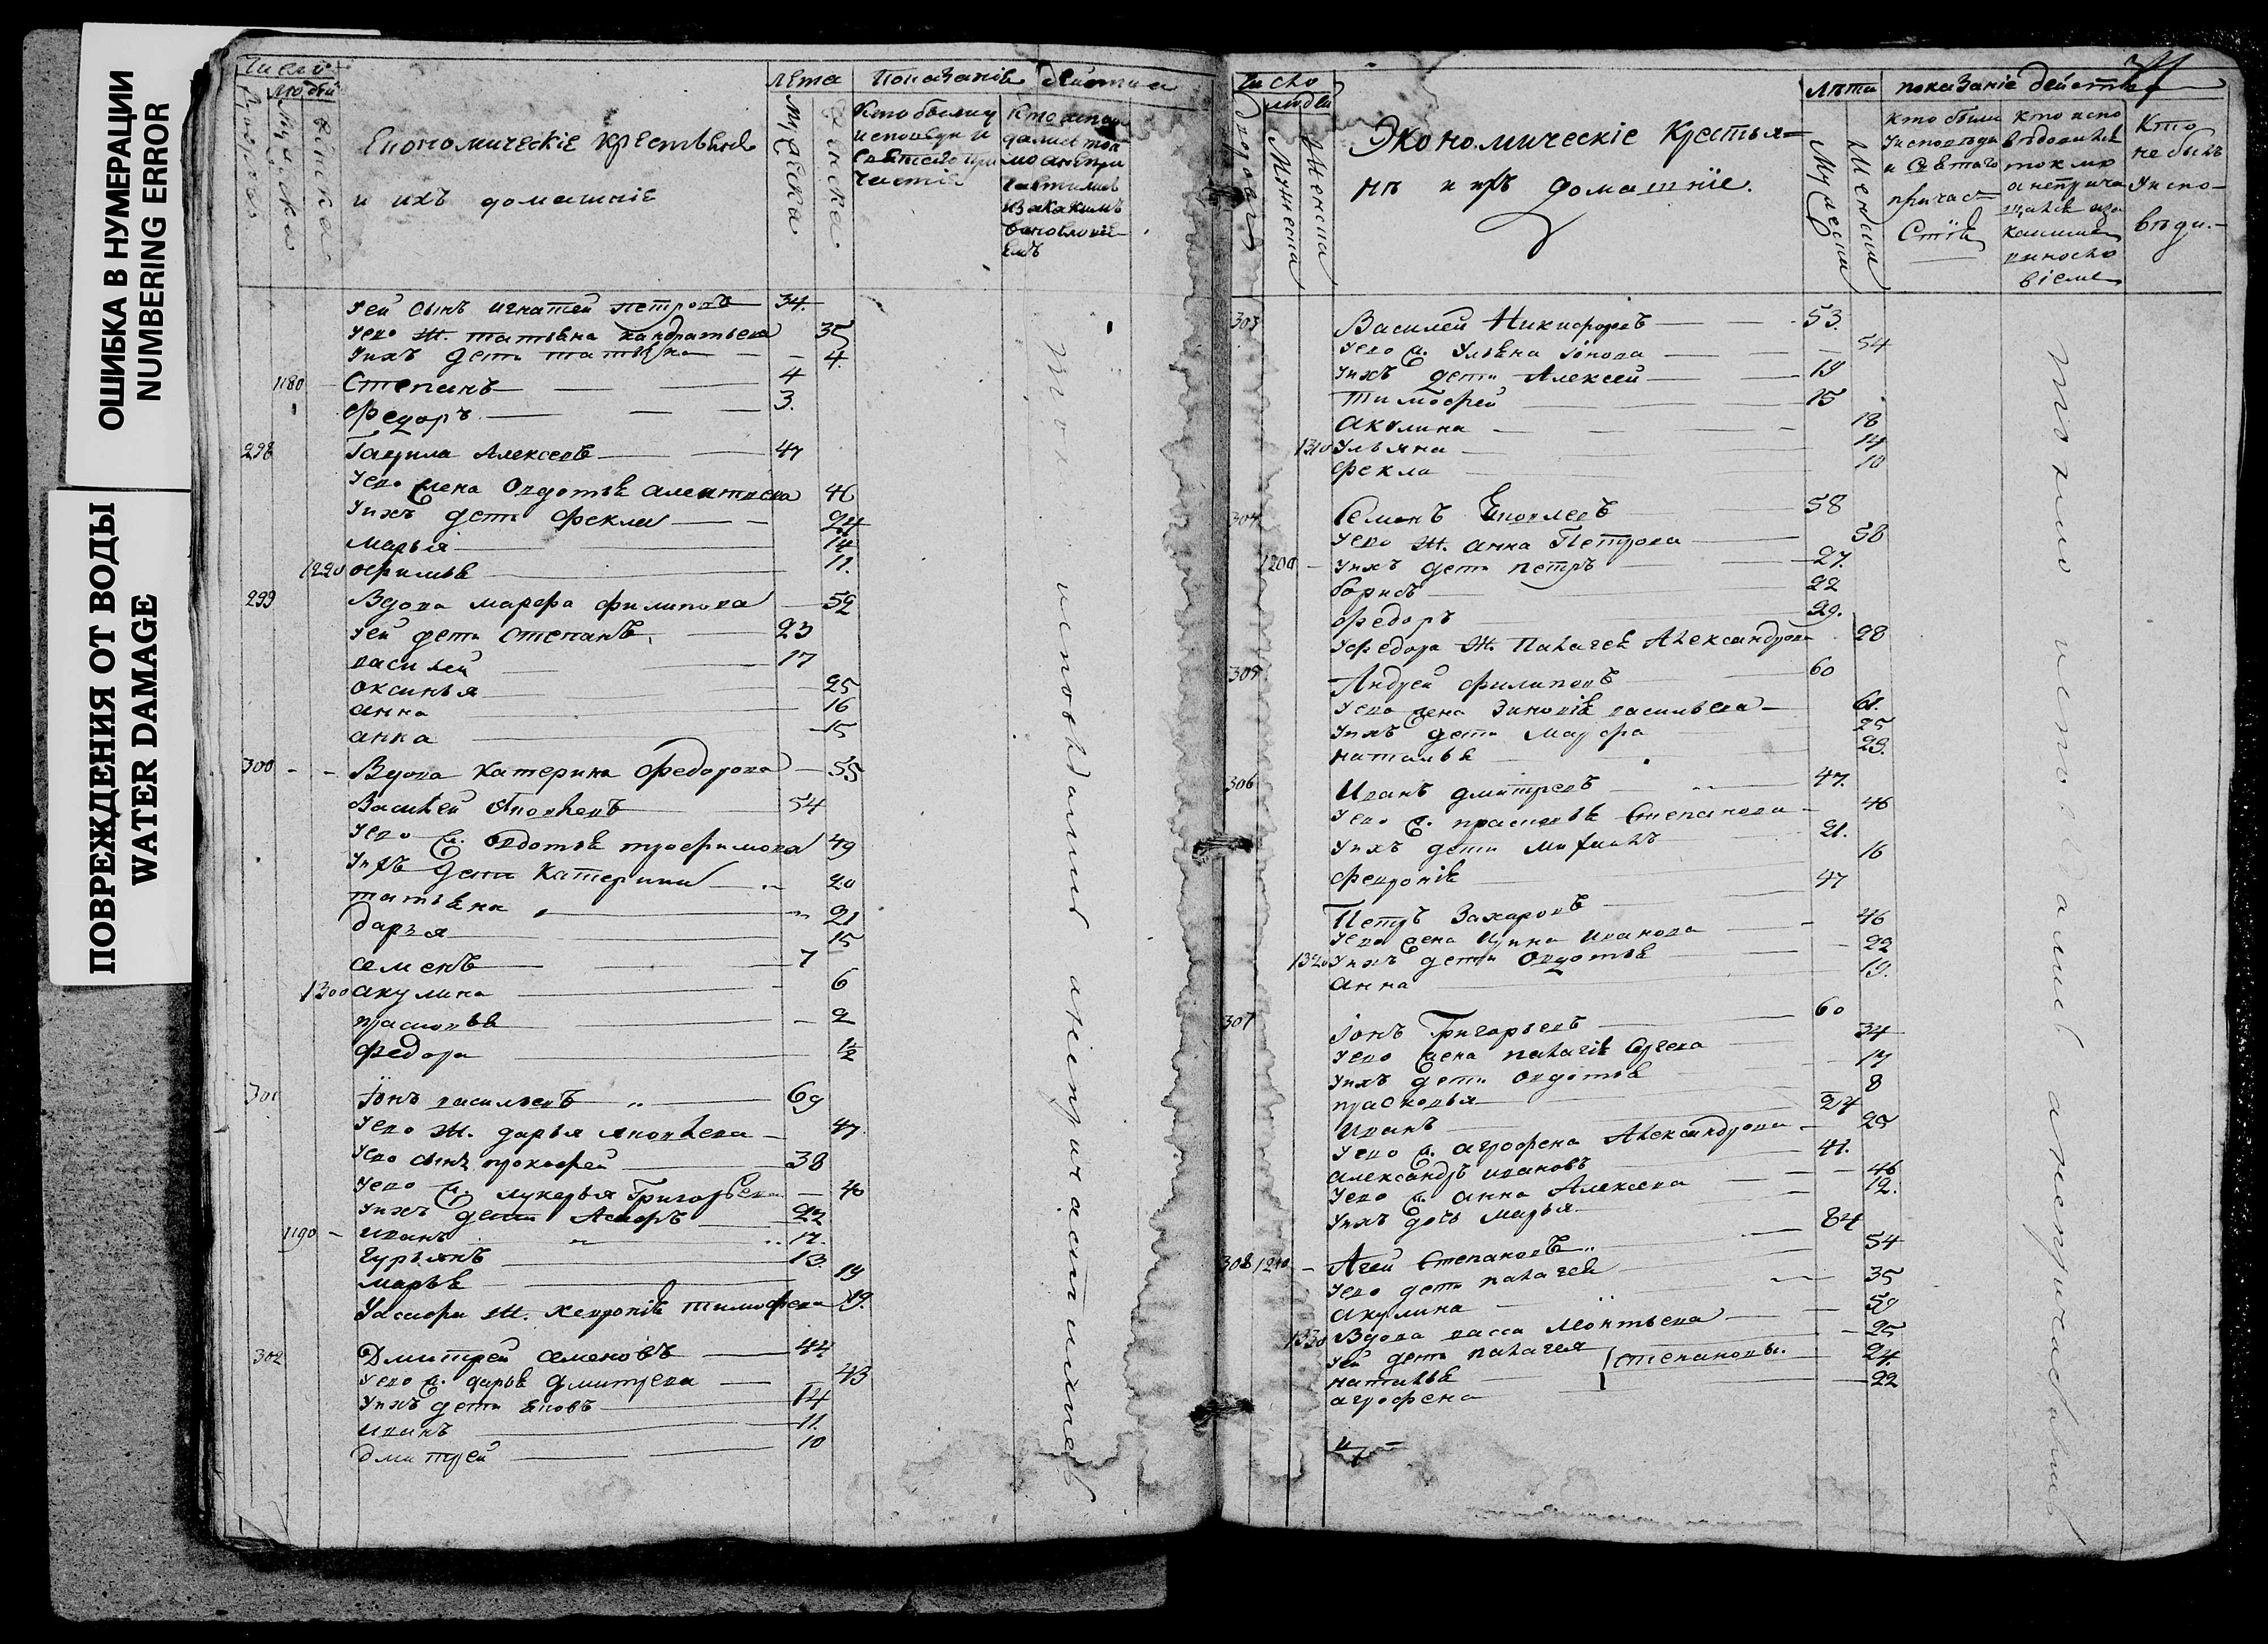 ОШИБКА В НУМЕРАЦИИ
NUMBERING ERROR
ПОВРЕЖДЕНИЯ ОТ ВОДЫ
WATER DAMAGE
Число
людей
Дворовъ
Мужеска
Женска
Економическіе крестьяне
и ихъ домашніе
лета
Мужеска
Женска
Показаніе действа
Кто были у
исповеди и
святаго при
частія
Кто испо
дались ток
мо а непри
частились
и за какимъ
винословіе
емъ
уей сынъ игнатей петровъ 34.
уево ж. татьяна кандратьева 35
уихъ дети татьяна 4.
1180 Степанъ 4
Федоръ 3.
298 Гаврила Алексеевъ 47
уево жена Овдотья алентиева 46
уихъ дети Фекла 24
марья 14
1220 офимья 11.
299 Вдова марфа филипова 52
уей дети степанъ 23
василей 17
оксинья 25
анна 16
анна 15
300 Вдова катерина Федорова 55
Василей Яковлевъ 54
уево ж. Овдотья трофимова 49
уихъ дети Катерина 20
татьяна 21
дарья 15
семенъ 7
1300 акулина 6
прасковья 2
федора 1/2
301 Іонъ васильевъ 69
уево ж. дарья яковлева 47.
уево сынъ прокофей 38
уево ж. лукерья Григорьева 40
уихъ дети 22
1190 иванъ 17.
Гурьянъ 13.
марья 19
ж. хевронья тимофеева 19.
302 Дмитрей семеновъ 44
уево ж. дарья дмитрева 43
уихъ дети яковъ 14
иванъ 11.
Дмитрей 10
токмо исповедались а непричастились
Число
людей
Дворовъ
Мужеска
Женска
Экономическіе Крестья-
нѣ и ихъ домашніе.
лѣта
Мужеска
Женска
показаніе действа
Кто были
у исповѣди
и Святаго
причас-
стія
Кто испо
вѣдовался
токмо
а неприча
щался и за
какимъ
виносло
віемъ
Кто
не былъ
у испо-
вѣди.
303 Василей Никифоровъ 53.
уево ж. Ульяна іонова 54
уихъ дети Алексей 19
Тимофей 15
акулина 18
1310 Ульяна 14
Фекла 10
304 Семенъ Яковлевъ 58
уево ж. анна Петрова 58
1200 уихъ дети петръ 27.
борисъ 22
федоръ 29.
уфедора ж. Палагея Александрова 28
305 Андрей филиповъ 60
уево жена Зиновія васильева 61.
уихъ дети Марфа 25
наталья 23.
306 Иванъ дмитревъ 47.
уево ж. прасковья Степанова 46
уихъ дети Михаилъ 21.
Февронія 16
Петръ Захаровъ 47
уево жена Ирина иванова 46
1320 уихъ дети Овдотья 22
анна 19.
307 Іонъ Григорьевъ 60
уево жена палагія Сергеева 34
уихъ дети овдотья 17
прасковья 8
Иванъ 24
уево ж. агрофена Александрова 25
александръ ивановъ 41.
уево ж. анна Алексеева 46
уихъ дочь Марья 12.
308 1210 Агей Степановъ 84
уево дети палагея 54
акулина 35
1330 Вдова васса леонтьева 59
уей дети палагея 25
наталья степановы. 24.
агрофена 22
токмо исповедались а непричастились